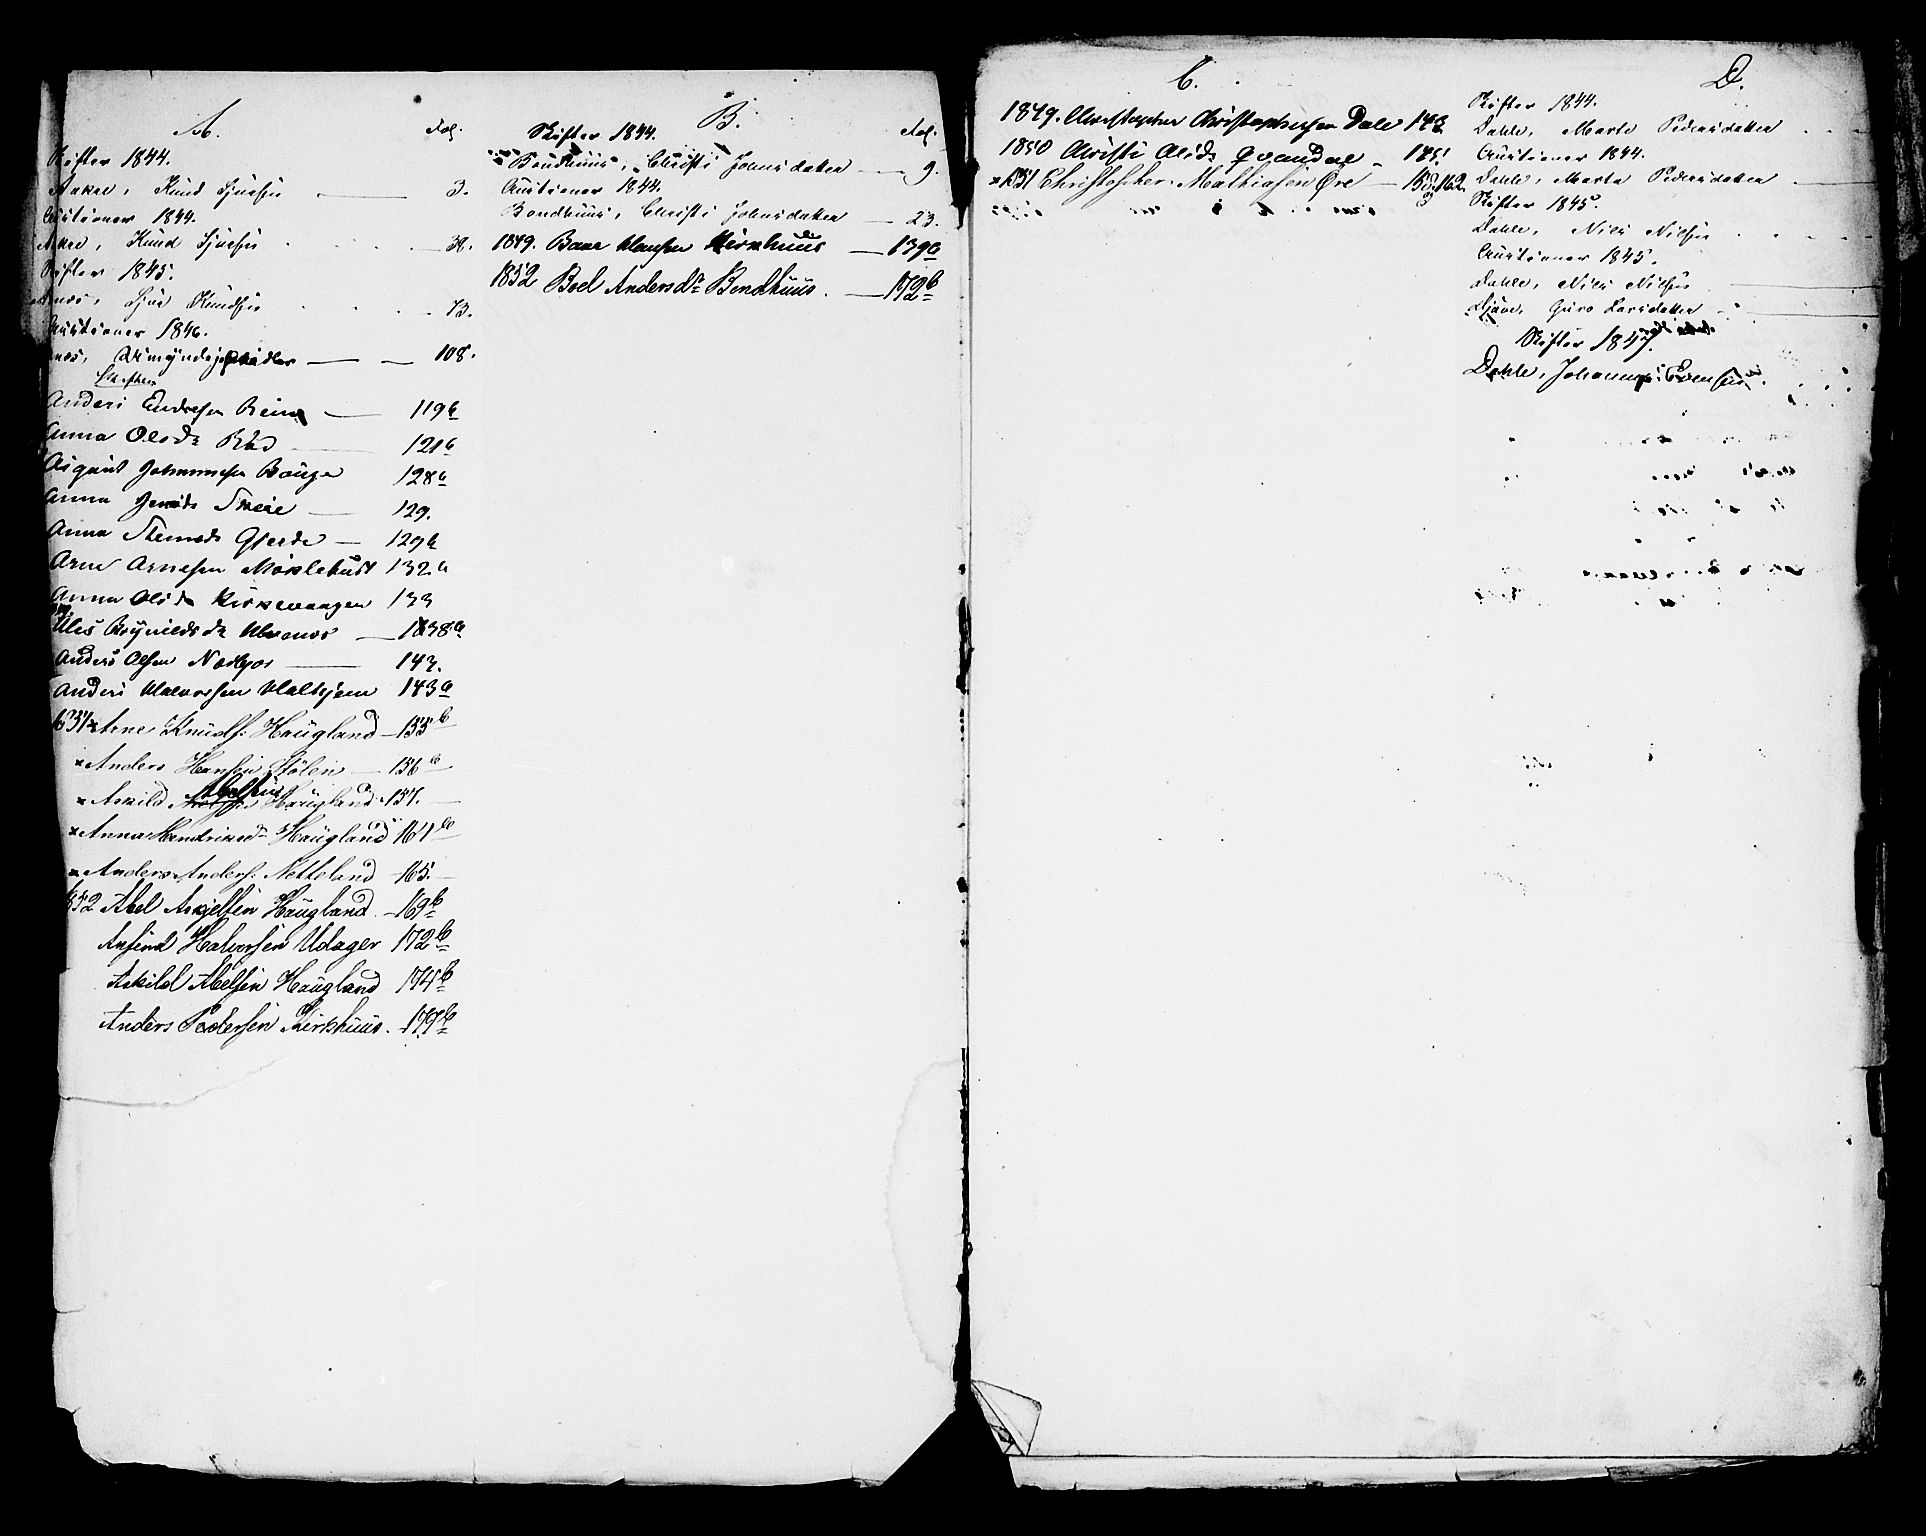 A. Fol.
Skifter 1844.
Aakre, Knud Sjursen 3.
Auctioner 1844.
Aakre, Knud Sjursen 38.
Skifter 1845.
Sjur Knudsen 73.
Auctioner 1846.
108.
Skifter
Anders Endresen Reine 119b
Anna Olsdr Røo 121b
Asgaut Johannesen Bauge 128b
Anna Jensdr Skeie 129.
Anna Steensdr Gjerde 129b
Arne Arnesen Møklebust 132b
Anna Olsdr Kirkevaagen 133
Brynildsdr 138b
Anders Olsen 143.
Anders Halvorsen Halhjem 143b
1851 x Arne Knuds: Haugland 155b
x Anders Hansen Stølen 156b
x Askild Abelsen Haugland 157.
x Anna Hendriksdr Haugland 161b
x Anders Anders: Netteland 165.
1852 Abel Askjelsen Haugland 169b
Anfind Halvorsen Udager 172b
Askild Abelsen Haugland 174b
Anders Pedersen Kirkhuus. 177b
B. Fol.
Skifter 1844.
Bondhuus, Christi Johnsdatter 9.
Auctioner 1844.
Bondhuus, Christi Johnsdatter 23.
1849. Baar Hansen Kirkhuus 139b
1852 Boel Andersdr Bondhuus. 172b
C.
1849. Christopher Christophersen Dale 143
1850 Christi Olsdr Qvandal 145
x 1851 Christopher Mathiasen Øre 162
D.
Skifter 1844.
Dahle, Marte Pedersdatter
Auctioner 1844.
Dahle, Marta Pedersdatter
Skifter 1845.
Dahle, Niels Nilsen
Auctioner 1845.
Dahle, Niels Nilsen
Djøve, Guro Larsdatter
Skifter 1847.
Dahle, Johannes Evensen